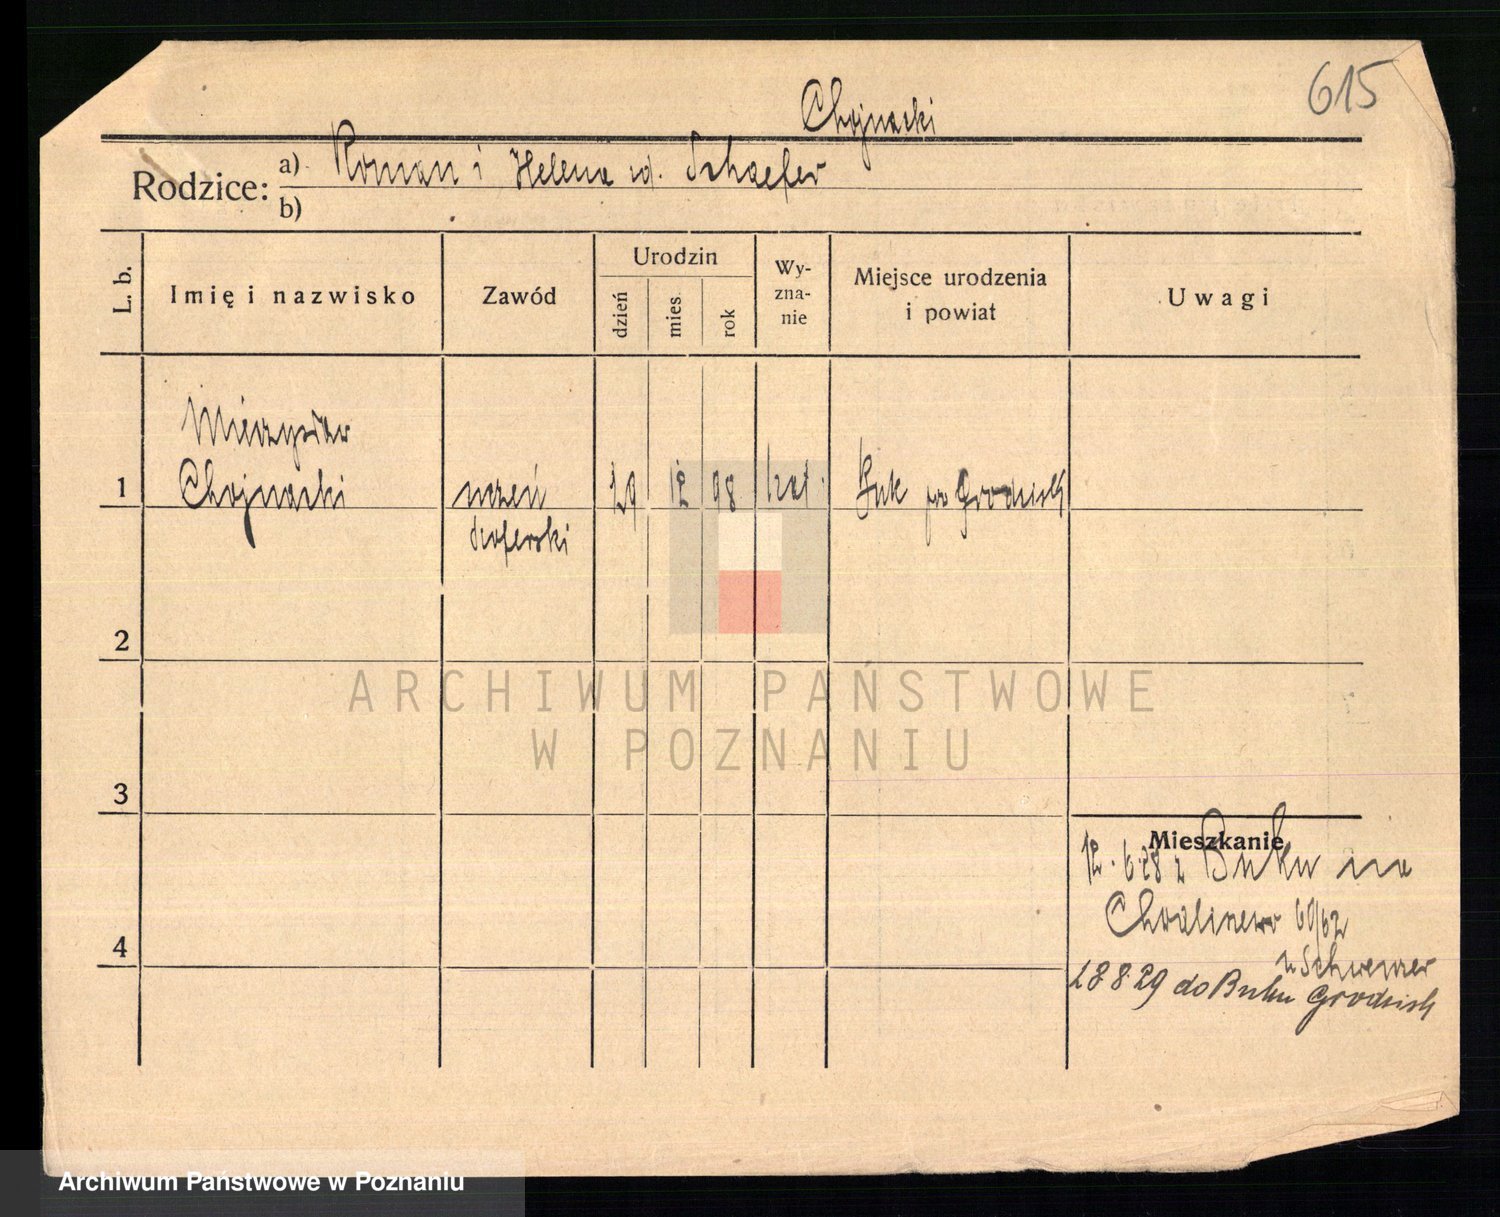 615
Chojnacki
Rodzice: a) Roman i Helena zd. Schaefer
b)
L. b.
Imię i nazwisko
Zawód
Urodzin
dzień
mies.
rok
Wy-
zna-
nie
Miejsce urodzenia
i powiat
Uwagi
Mieczysław
1 Chojnacki uczeń 29 12 98 kat. Buk po Grodzisk
szoferski
2
ARCHIWUM PAŃSTWOWE
W POZNANIU
3
Mieszkanie
12. 6 28 z Buku na
60/62
4
u
28 8.29 do Buku Grodzisk
Archiwum Państwowe w Poznaniu